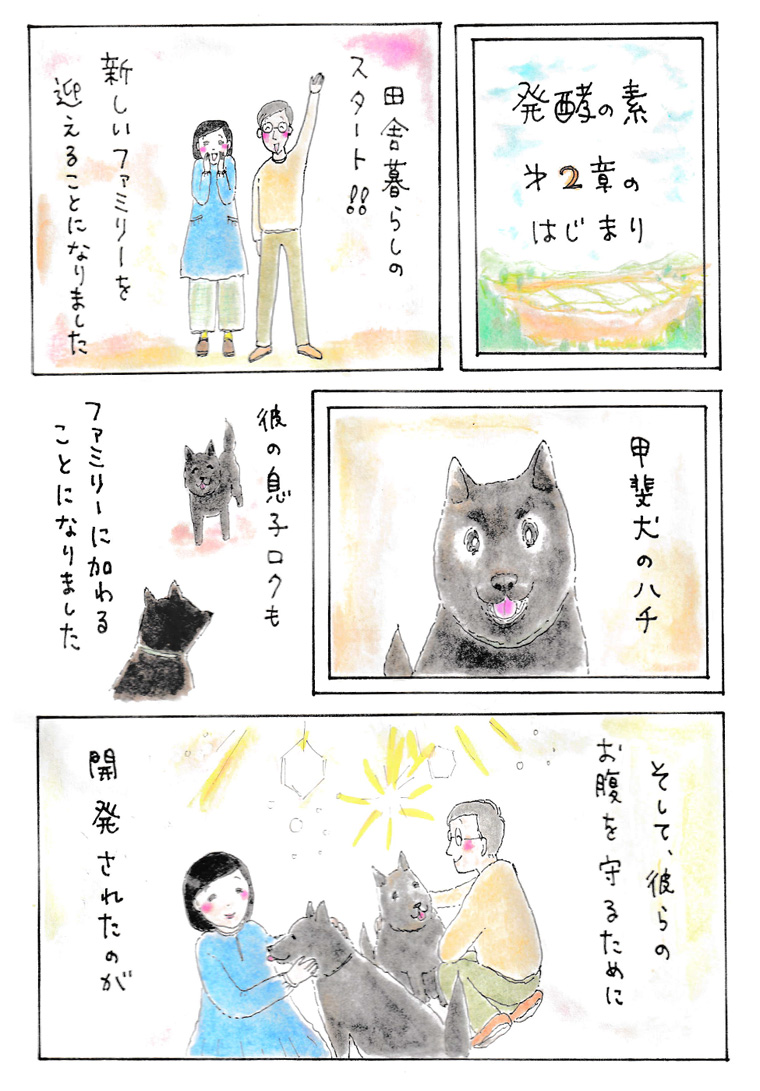 発酵の素
第2章の
はじまり
田舎暮らしの
スタート!!
新しいファミリーを
迎えることになりました
甲斐犬のハチ
彼の息子ロクも
ファミリーに加わる
ことになりました
そして、彼らの
お腹を守るために
開発されたのが